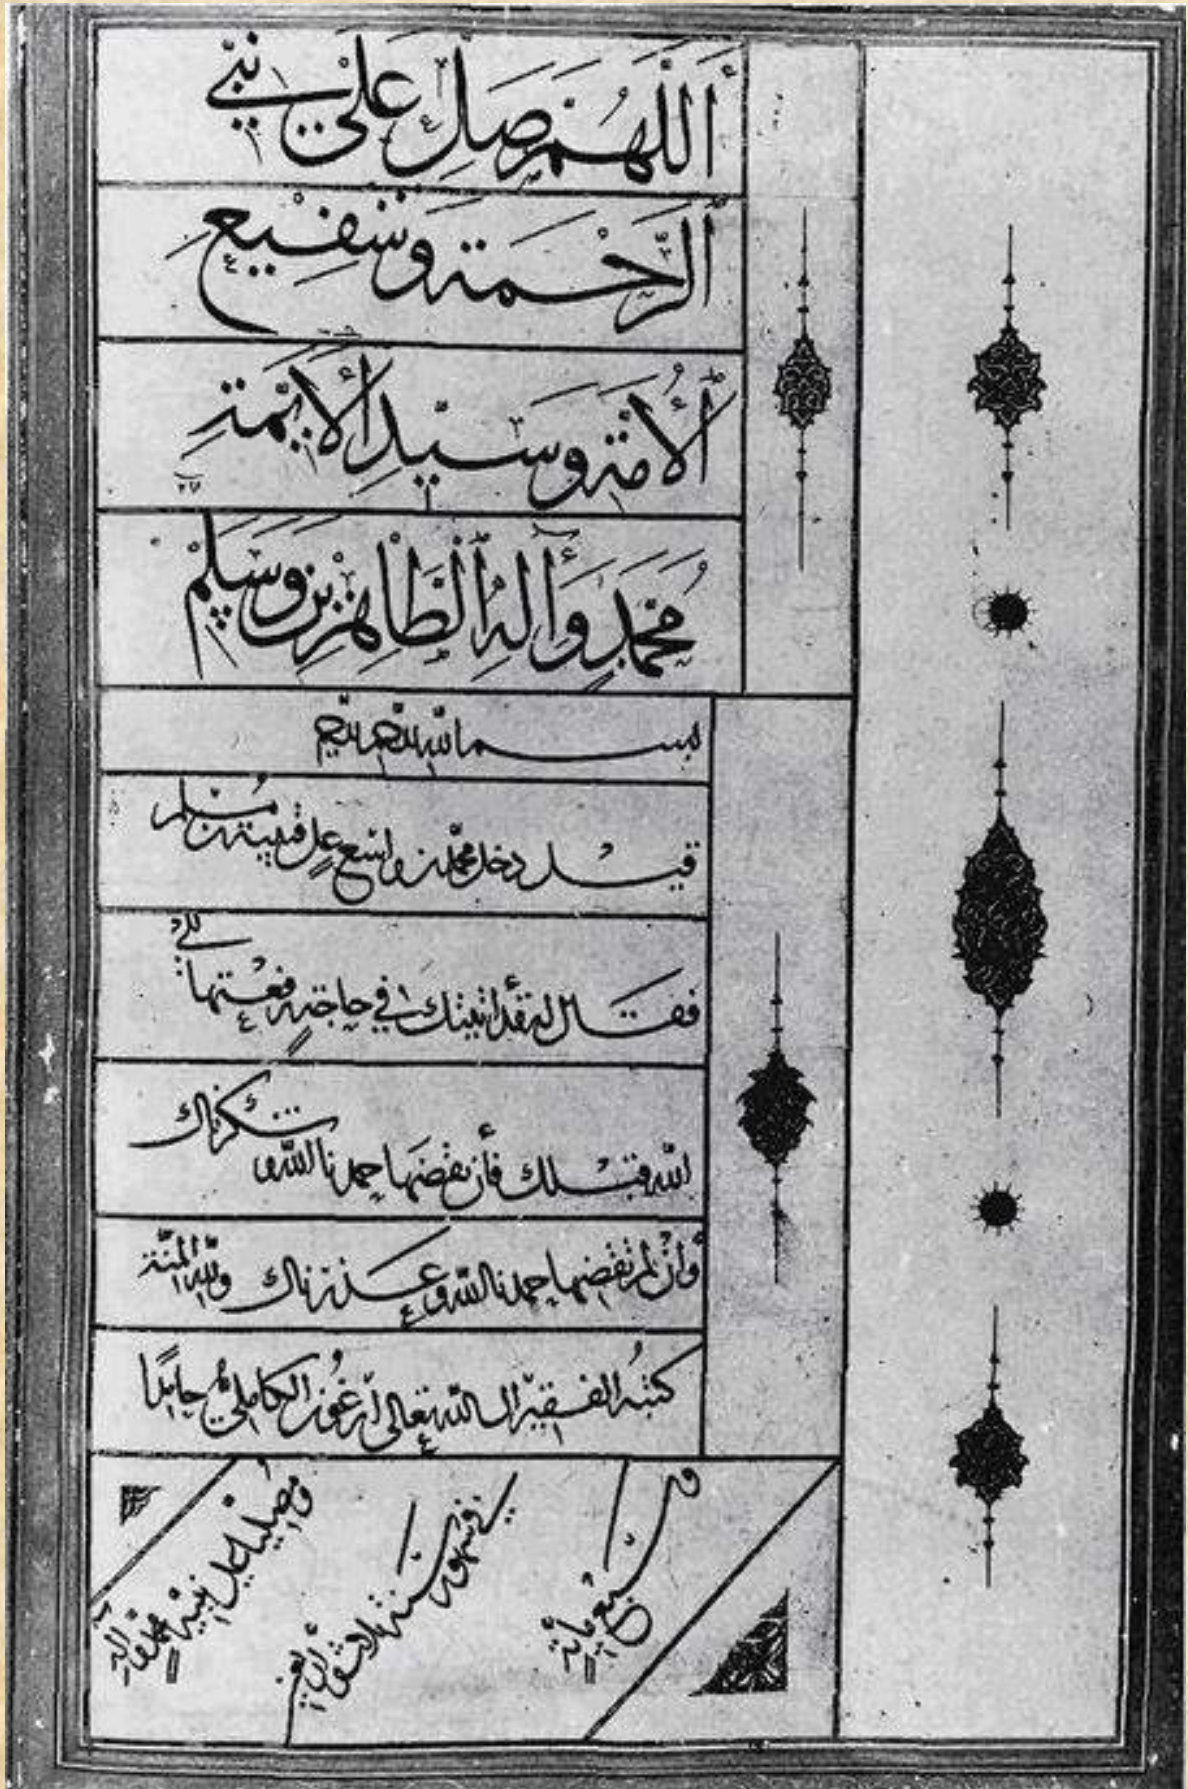 اَللّٰهُمَّ صَلِّ عَلٰى نَبِيِّ
اَلرَّحْمَةِ وَشَفِيعِ
اَلْأُمَّةِ وَسَيِّدِ الْأَئِمَّةِ
مُحَمَّدٍ وَآلِهِ الطَّاهِرِينَ وَسَلِّمْ
بسم الله الرحمن الرحيم
قيل دخل محمد بن واسع على قتيبة بن مسلم
فقال له قد اتيتك في حاجة رفعتها الى
الله قبلك فأن تقضها حمدنا الله و شكرناك
وأن لم تقضها حمدنا الله وعذرناك ولله المنة
كتبه الفقير الى الله تعالى أرغون الكاملي حامدا
في شهور سنة ثلاث وأربعين
وسبع مائة
ومصليا على نبيه محمد وآله